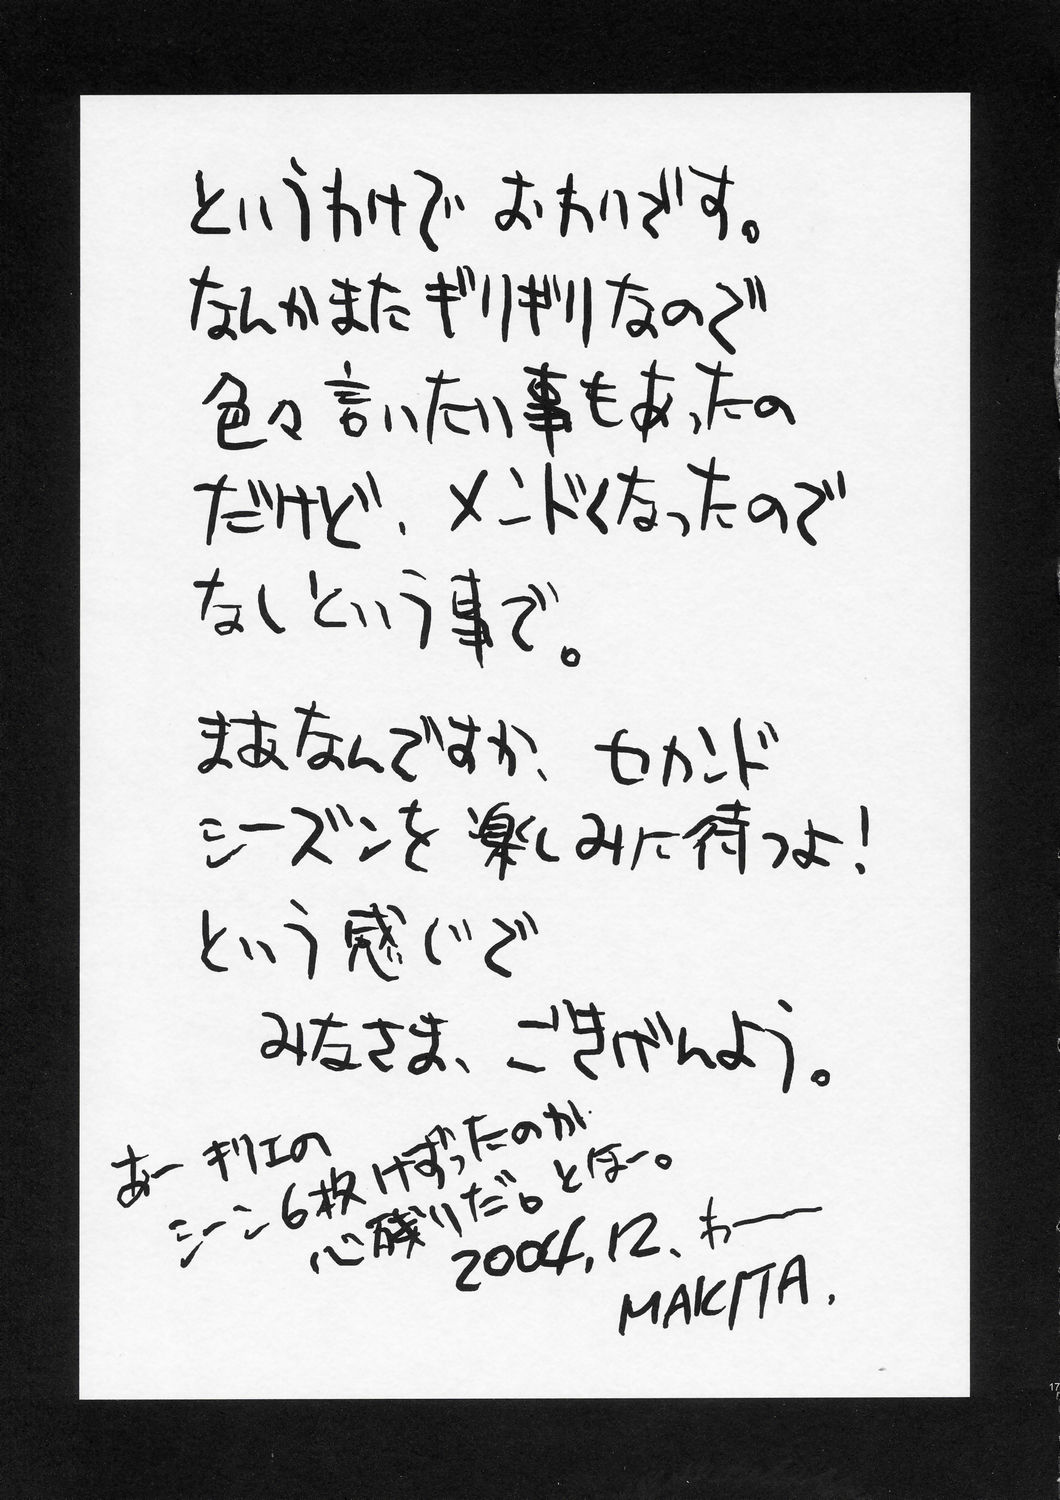 というわけで おわりです。
なんかまたギリギリなので
色々言いたい事もあったの
だけど、メンドくなったので
なしという事で。
まあなんですか、セカンド
シーズンを楽しみに待つよ!
という感じで
みなさま、ごきげんよう。
あー ギリエの
シーン6枚けずったのが
心残りだ。とほー。
2004.12. わー
MAKITA.
17